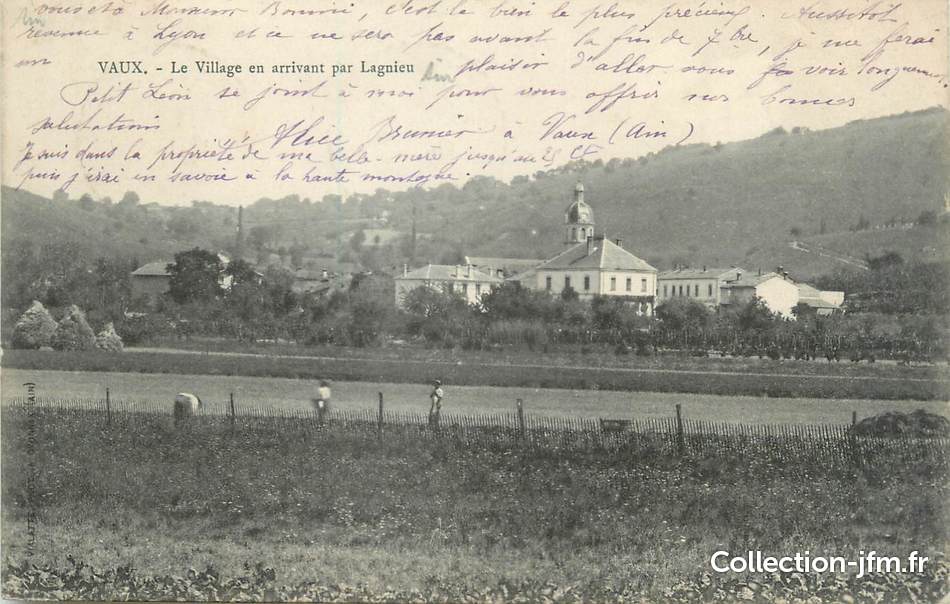 vous et à Monsieur Bonnié, c'est le bien le plus précieux. Aussitôt
revenue à Lyon et ce ne sera pas avant la fin de 7bre, je me ferai
un plaisir d'aller vous voir longuement
VAUX. - Le Village en arrivant par Lagnieu
Petit Léon se joint à moi pour vous offrir nos bonnes
salutations
Alice Brunier à Vaux (Ain)
Je suis dans la propriété de ma belle-mère jusqu'au 25 ct
puis j'irai en Savoie à la haute montagne.
Collection-jfm.fr